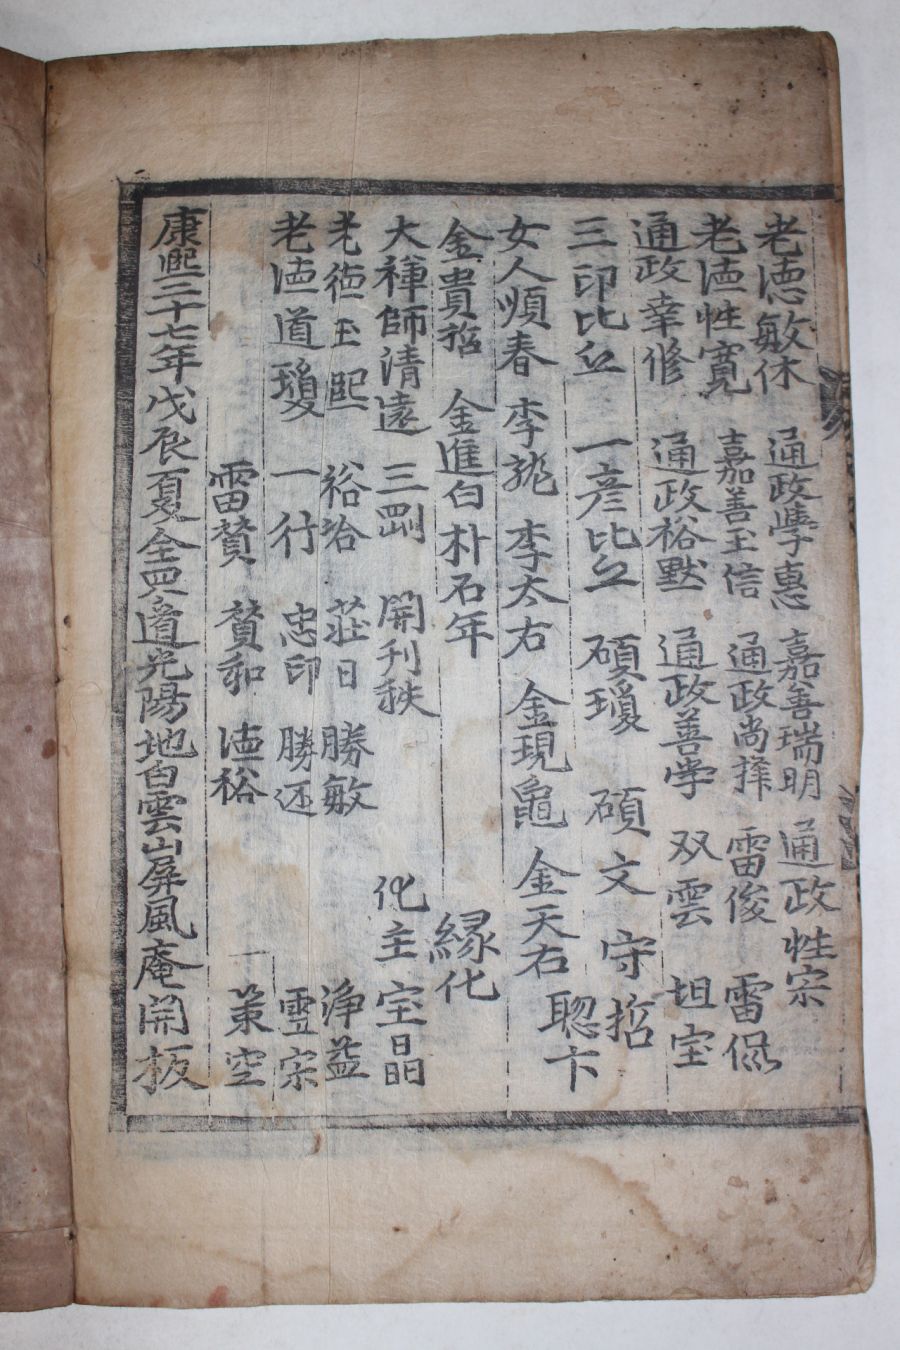 老德敏休 通政學惠 嘉善瑞明 通政性宗
老德性寬 嘉善玉信 通政尚擇 雷俊 雷侃
通政幸修 通政裕默 通政善学 双雲 坦宝
三印比丘 一彦比丘 碩瓊 碩文 守哲
女人順春 李龍 李太右 金現龜 金天右 聡卞
金貴 金進白 朴石年 緣化
大禅師清遠 三剛 開刊秩 化主 宝晶
老德玉熙 裕 莊日 勝敏 淨益
老德道瓊 一行 忠印 勝还 霊宗
雷賛 賛和 德裕 一策空
康熙二十七年戊辰夏全罗道光陽地白雲山屏風庵開板